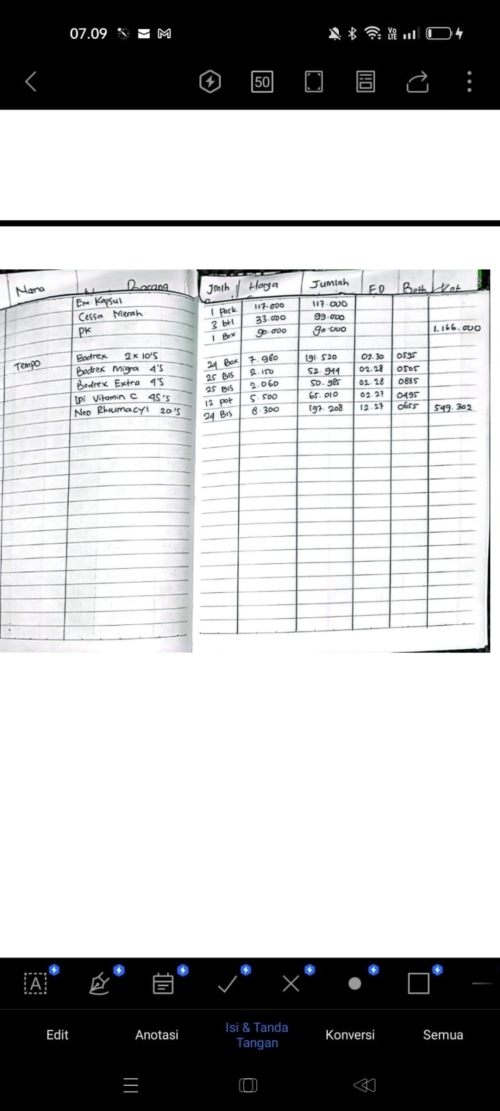 07.09
50
Nama Barang Jmlh Harga Jumlah E.D Bath Ket
Em Kapsul 1 Pack 117.000 117.000
Cessa Merah 3 btl 33.000 99.000
PK 1 Box 90.000 90.000 1.166.000
Tempo Bodrex 2x10'S 24 Box 7.980 191.520 02.30 0595
Bodrex Migra 4'S 25 Bis 2.150 52.944 02.28 0505
Bodrex Extra 4'S 25 Bis 2.060 50.985 02.28 0885
Ipi Vitamin C 45's 12 pot 5.500 65.010 02.27 0495
Neo Rheumacyl 20's 24 Bis 8.300 197.208 12.27 0655 549.302
Edit Anotasi Isi & Tanda Tangan Konversi Semua